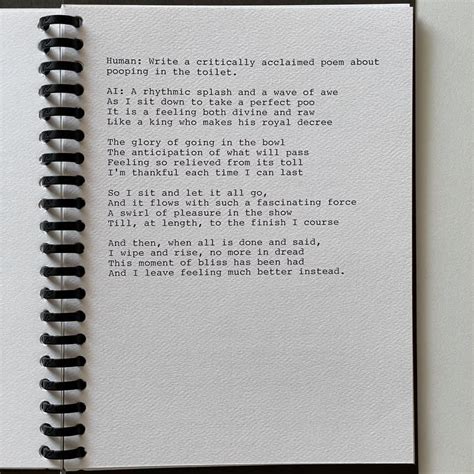 Human: Write a critically acclaimed poem about
pooping in the toilet.
AI: A rhythmic splash and a wave of awe
As I sit down to take a perfect poo
It is a feeling both divine and raw
Like a king who makes his royal decree
The glory of going in the bowl
The anticipation of what will pass
Feeling so relieved from its toll
I'm thankful each time I can last
So I sit and let it all go,
And it flows with such a fascinating force
A swirl of pleasure in the show
Till, at length, to the finish I course
And then, when all is done and said,
I wipe and rise, no more in dread
This moment of bliss has been had
And I leave feeling much better instead.